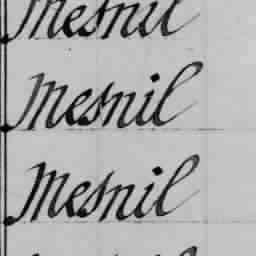 Mesnil
Mesnil
Mesnil